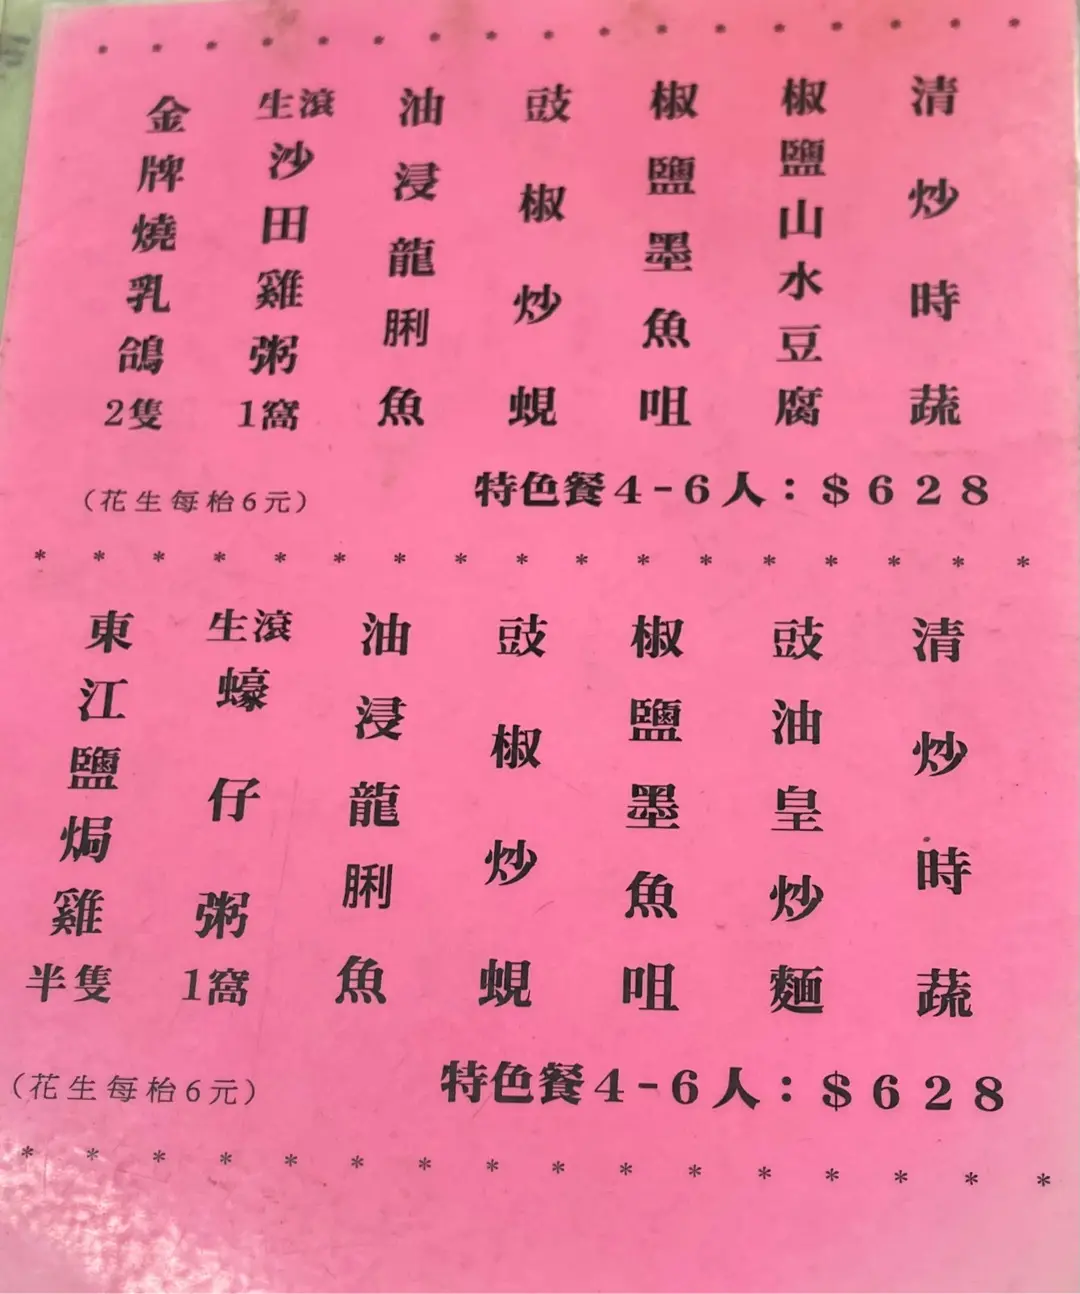 金牌燒乳鴿2隻
生滾沙田雞粥1窩
油浸龍脷魚
豉椒炒蜆
椒鹽墨魚咀
椒鹽山水豆腐
清炒時蔬
（花生每枱6元）
特色餐4-6人：$628
東江鹽焗雞半隻
生滾蠔仔粥1窩
油浸龍脷魚
豉椒炒蜆
椒鹽墨魚咀
豉油皇炒麵
清炒時蔬
（花生每枱6元）
特色餐4-6人：$628